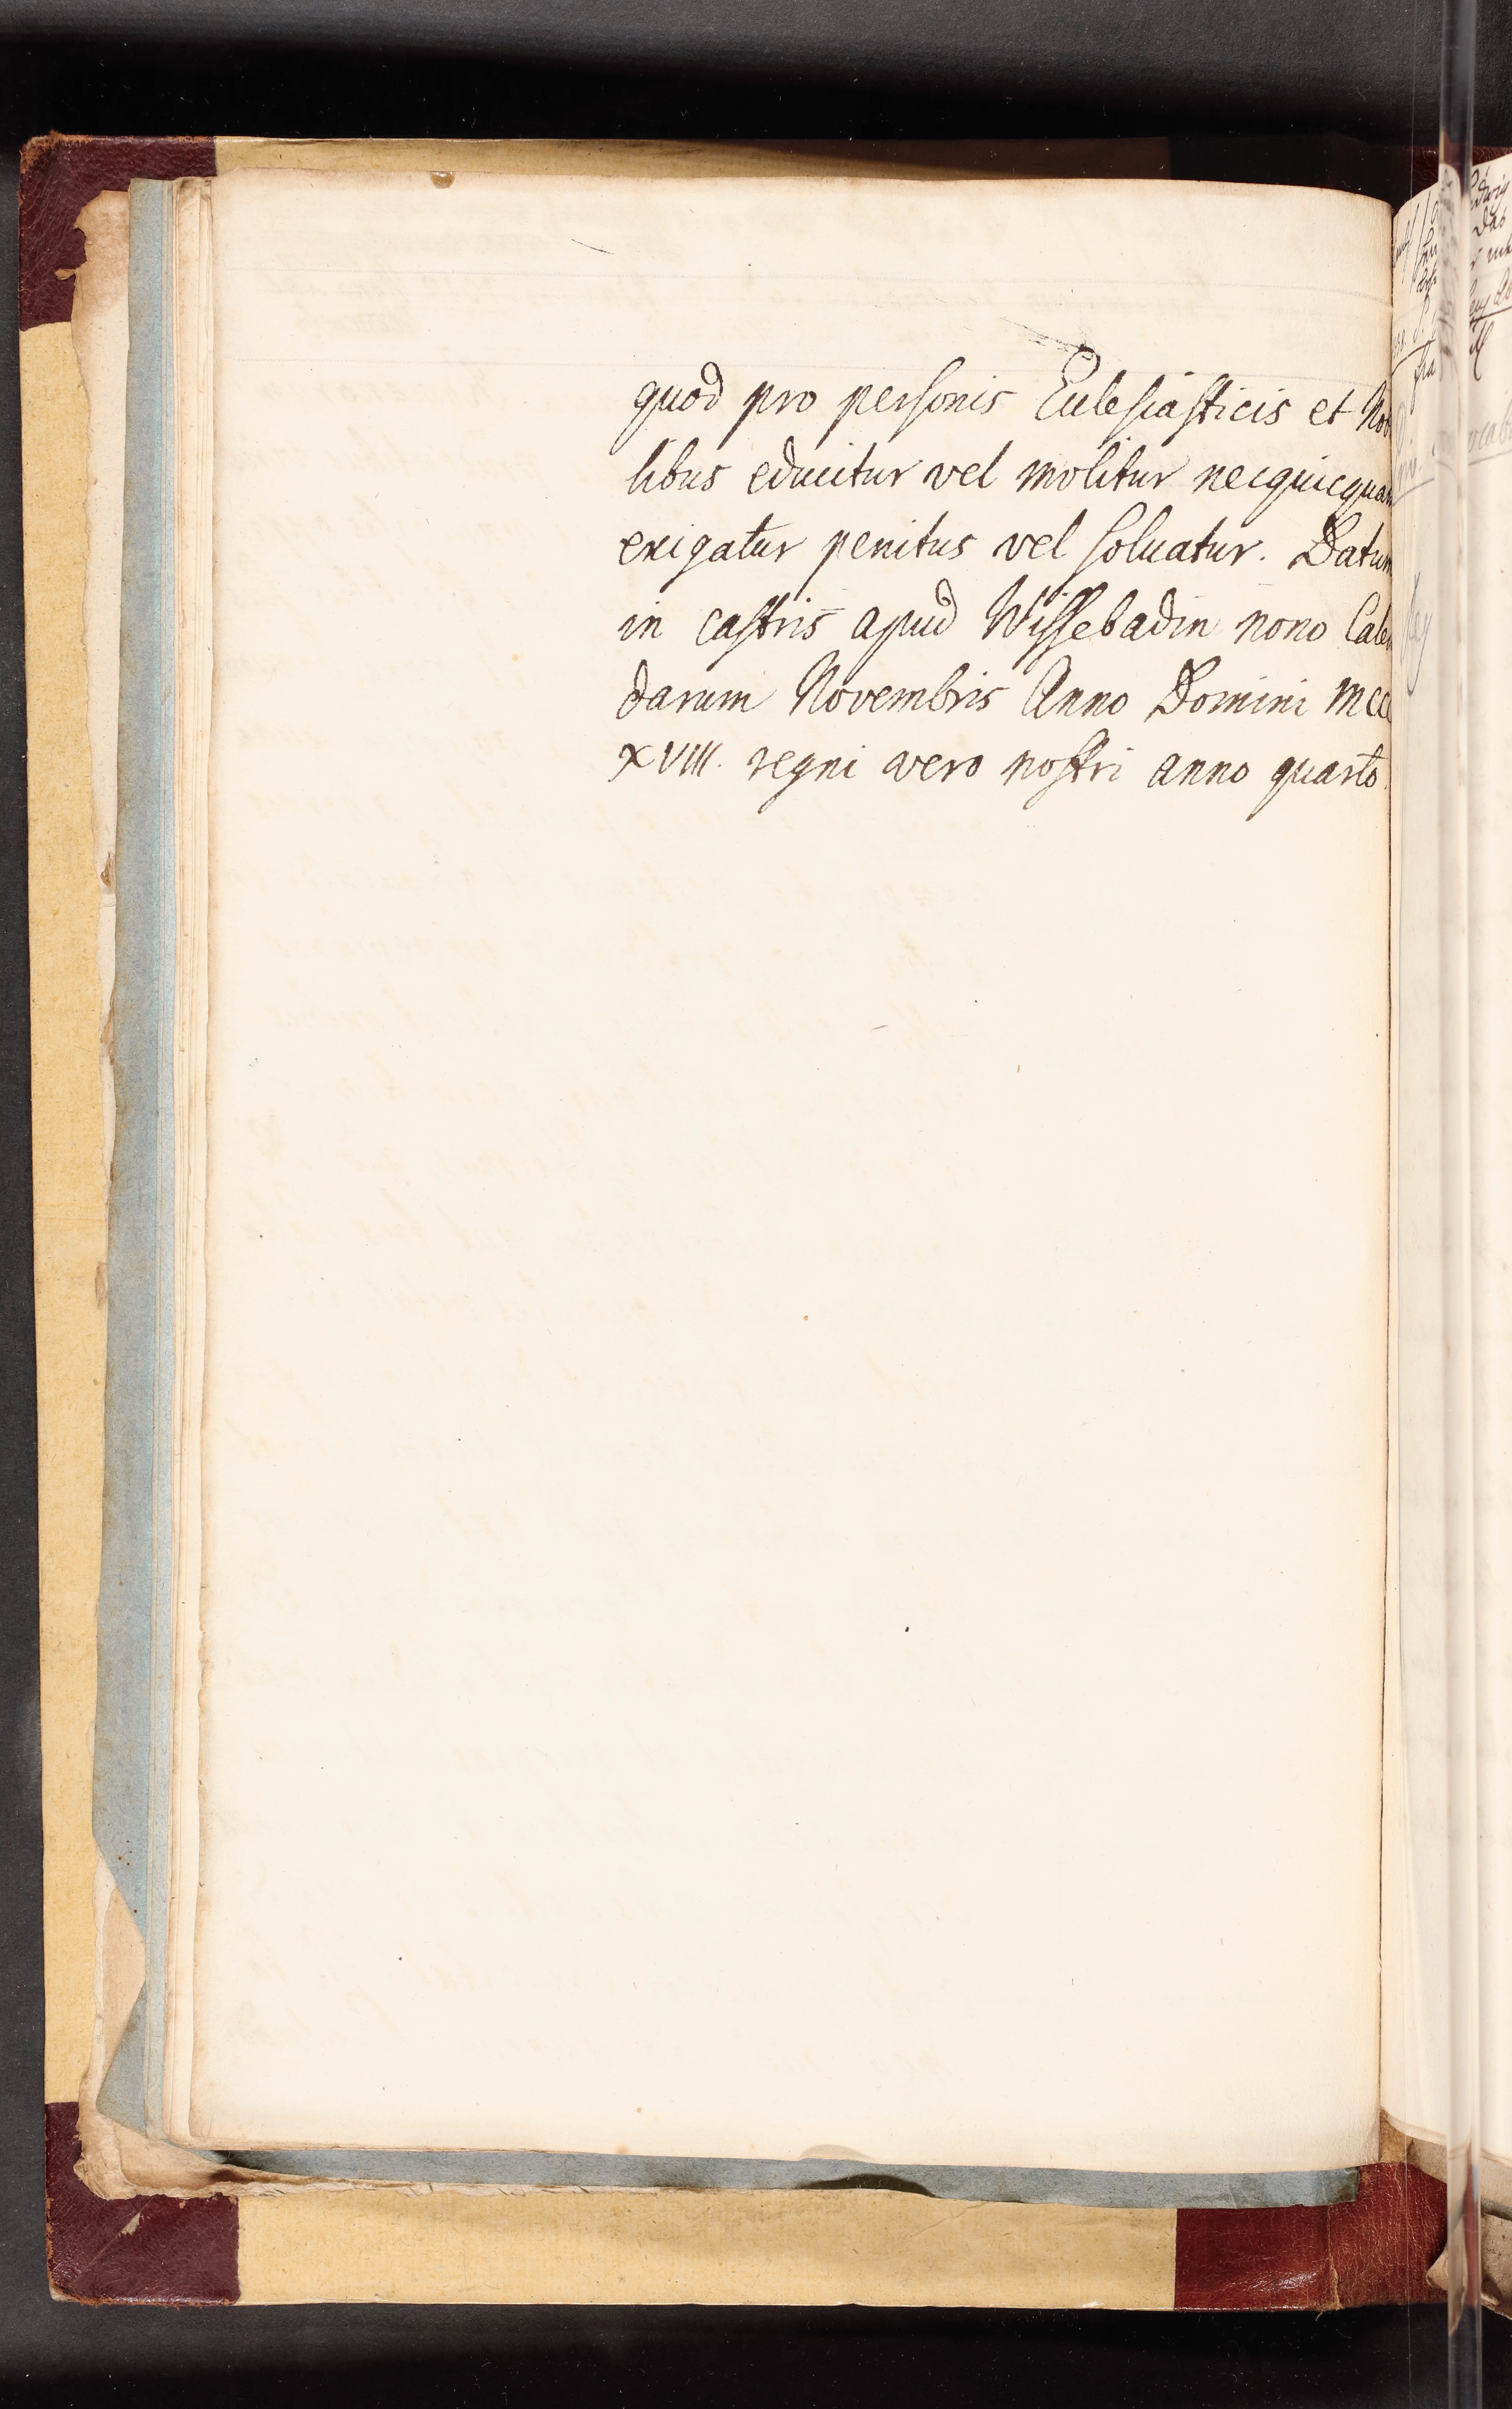 quod pro personis Ecclesiasticis et Nob
libus educitur vel molitur necquicquam
exigatur penitus vel soluatur. Datum
in castris apud Wissebadin nono Calen
darum Novembris Anno Domini MCCC
XVIII. regni vero nostri anno quarto.